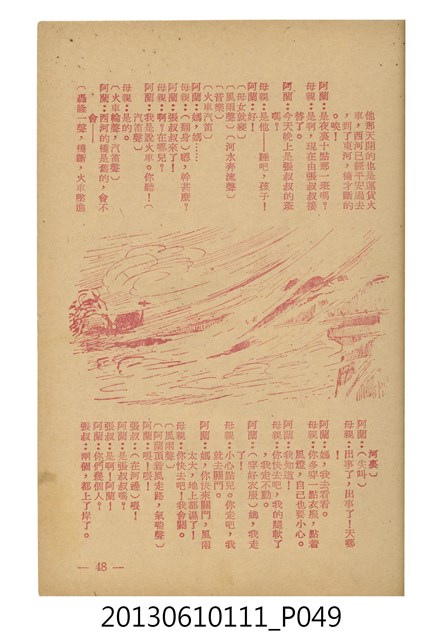 他那天開的也是運貨火
車，西河已經平安過去
，到了東河，橋才斷的
。唉！
阿蘭：是夜裏十點那一班嗎？
母親：是啊，現在由張叔叔接
替了。
阿蘭：今天晚上是張叔叔的班
嗎？
母親：是他——睡吧，孩子！
阿蘭：好！
（母女就寢）
（風雨聲）（河水奔流聲）
（音樂）
（火車汽笛）
阿蘭：媽媽……
母親：（翻身）嗯，幹甚麼？
阿蘭：張叔叔來了！
母親：啊？在哪兒？
阿蘭：我是說火車。你聽！（
汽笛聲）
母親：是的。
（火車輪聲，汽笛聲）
阿蘭：西河的橋是舊的，會不
會——
（轟隆一聲，橋斷，火車墜進
河裏）
阿蘭：（尖叫。）
母親：出事了，出事了！天哪
！
阿蘭：媽，我去看看。
母親：你多穿一點衣服，點着
風燈，自己也要小心。
阿蘭：我知道！
母親：你快去吧，我的腿軟了
，我走不動。
阿蘭：（穿好衣服）媽，我走
了！
母親：小心點兒。你走吧，我
就去關門。
阿蘭：媽，你快來關門，風雨
太大，地上都濕了！
母親：你快去吧！我會關。
（風雨聲）
（阿蘭頂着風走路，氣喘聲）
阿蘭：喂！喂！
張叔：（在河邊）喂！
阿蘭：是張叔叔嗎？
張叔：是啊！阿蘭！
阿蘭：你們幾個人？
張叔：兩個，都上了岸了。
— 48 —
20130610111_P049